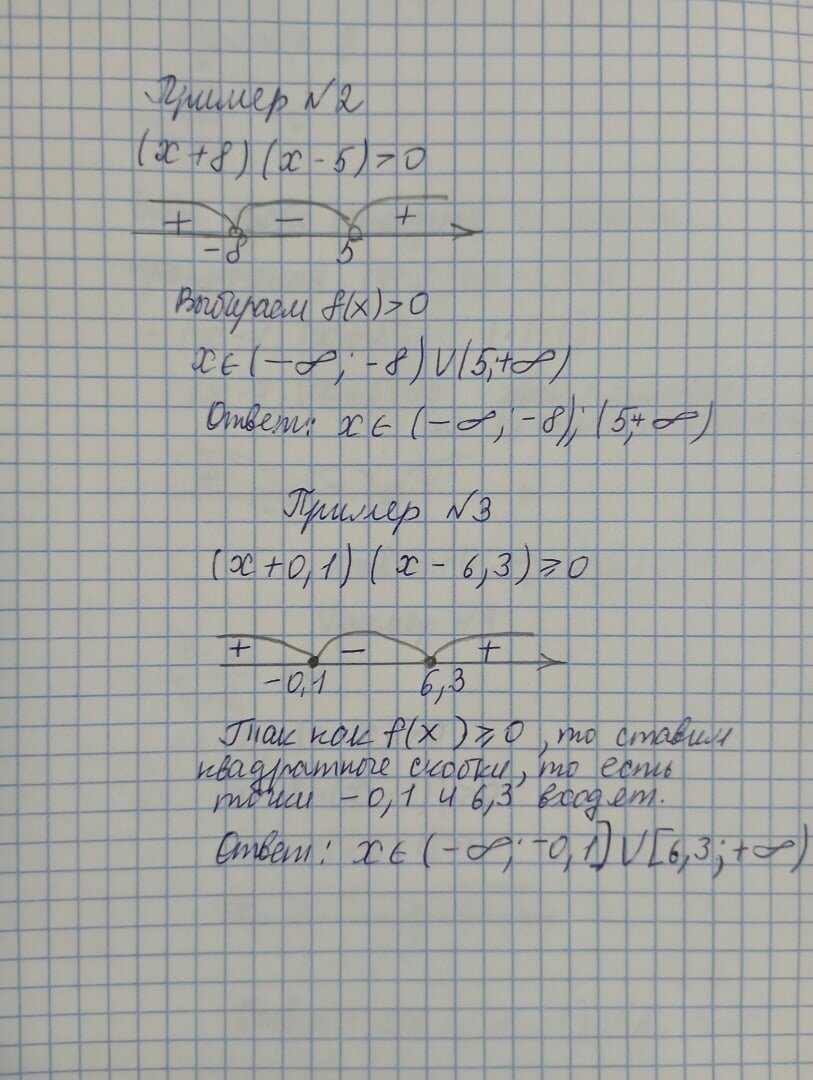 Пример №2
(x+8)(x-5)>0
+ - +
-8 5
Выбираем f(x)>0
x∈(-∞; -8)∪(5;+∞)
Ответ: x∈(-∞; -8); (5;+∞)
Пример №3
(x+0,1)(x-6,3)≥0
+ - +
-0,1 6,3
Так как f(x)≥0, то ставим
квадратные скобки, то есть
точки -0,1 и 6,3 входят.
Ответ: x∈(-∞; -0,1]∪[6,3;+∞)